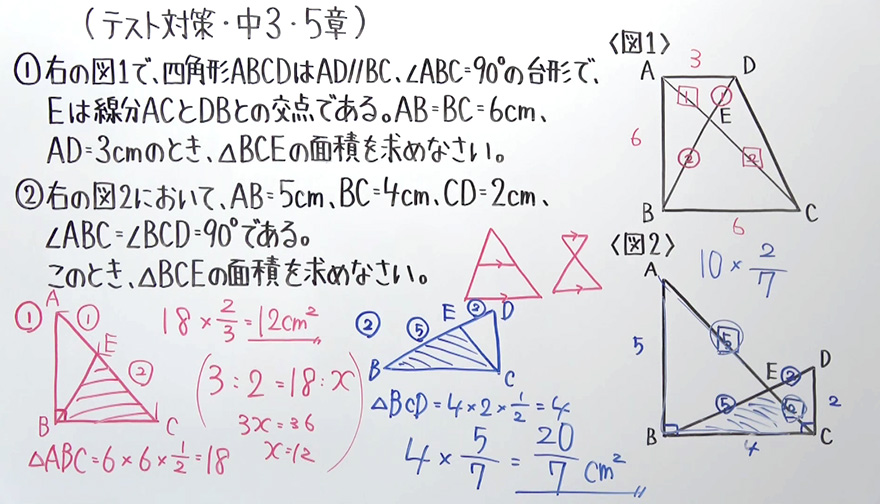 (テスト対策・中3・5章)
①右の図1で、四角形ABCDはAD//BC、∠ABC=90°の台形で、
Eは線分ACとDBとの交点である。AB=BC=6cm、
AD=3cmのとき、△BCEの面積を求めなさい。
②右の図2において、AB=5cm、BC=4cm、CD=2cm、
∠ABC=∠BCD=90°である。
このとき、△BCEの面積を求めなさい。
〈図1〉
3
A D
1 1
E
6
2 2
B C
6
〈図2〉
10×2/7
A
5
5
E ② D
⑤ 2
2
B C
4
①
A
①
E
②
B C
18×2/3=12cm²
(3:2=18:x)
3x=36
x=12
△ABC=6×6×1/2=18
②
E ② D
⑤
B
C
△BCD=4×2×1/2=4
4×5/7=20/7cm²